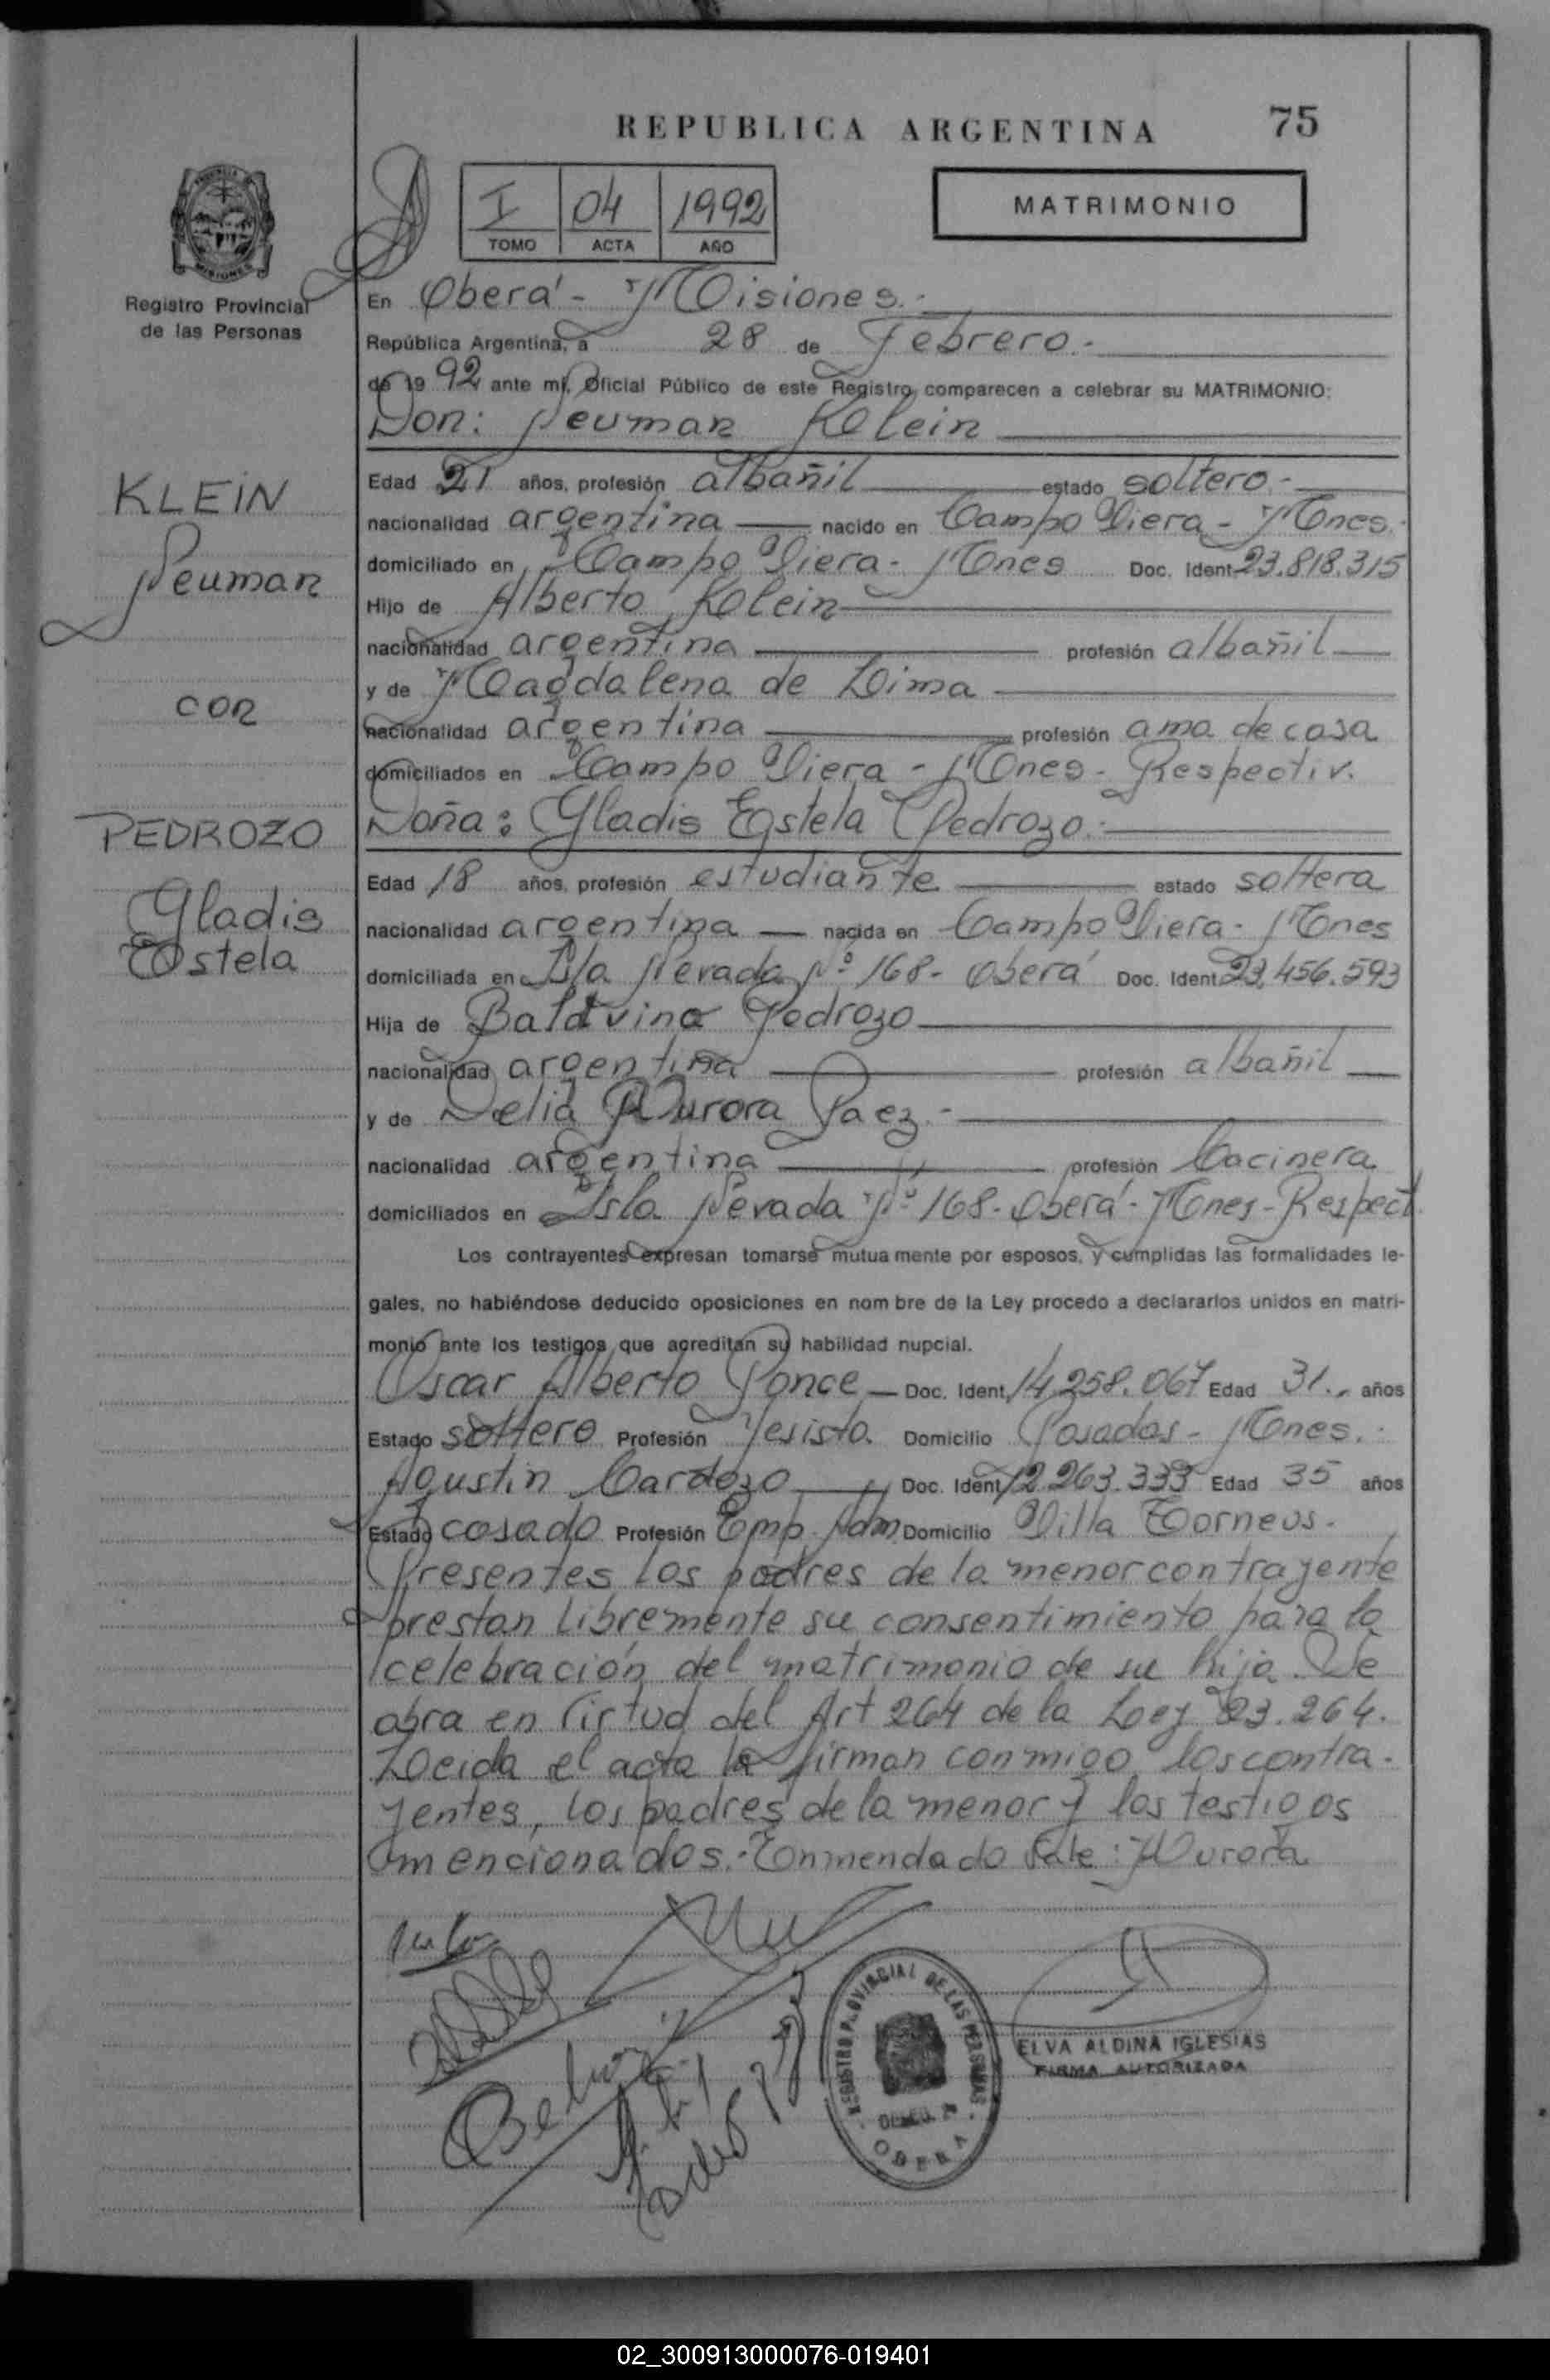 REPUBLICA ARGENTINA
75
I 04 1992
TOMO ACTA AÑO
MATRIMONIO
MISIONES
Registro Provincial
de las Personas
En Oberá - Misiones.-
República Argentina, a 28 de Febrero.-
de 1992 ante mí, Oficial Público de este Registro, comparecen a celebrar su MATRIMONIO:
Don: Neuman Klein
KLEIN
Neuman
con
PEDROZO
Gladis
Estela
Edad 21 años, profesión albañil estado soltero.-
nacionalidad argentina nacido en Campo Viera - Mnes.-
domiciliado en Campo Viera - Mnes Doc. Ident. 23.818.315
Hijo de Alberto Klein
nacionalidad argentina profesión albañil
y de Magdalena de Lima
nacionalidad argentina profesión ama de casa
domiciliados en Campo Viera - Mnes - Respectiv.
Doña: Gladis Estela Pedrozo.-
Edad 18 años, profesión estudiante estado soltera
nacionalidad argentina nacida en Campo Viera - Mnes
domiciliada en Isla Nevada Nº 168 - Oberá Doc. Ident. 23.456.593
Hija de Pedrozo
nacionalidad argentina profesión albañil
y de Delia Aurora Paez.-
nacionalidad argentina profesión Cocinera
domiciliados en Isla Nevada Nº 168 - Oberá - Mnes - Respect.
Los contrayentes expresan tomarse mutua mente por esposos, y cumplidas las formalidades le-
gales, no habiéndose deducido oposiciones en nom bre de la Ley procedo a declararlos unidos en matri-
monio ante los testigos que acreditan su habilidad nupcial.
Oscar Alberto Ponce Doc. Ident. 14.258.067 Edad 31.- años
Estado soltero Profesión Yesista Domicilio Posadas - Mnes.-
Agustin Cardozo Doc. Ident. 12.263.333 Edad 35 años
Estado casado Profesión Emp. Adm. Domicilio Villa Torneus.
Presentes los padres de la menor contrayente
prestan libremente su consentimiento para la
celebración del matrimonio de su hija. Se
obra en virtud del Art 264 de la Ley 23.264.
Leida el acta la firman conmigo los contra-
yentes, los padres de la menor y los testigos
mencionados.- Enmendado Vale: Aurora
REGISTRO PROVINCIAL DE LAS PERSONAS
OBERA
ELVA ALDINA IGLESIAS
FIRMA AUTORIZADA
02_300913000076-019401